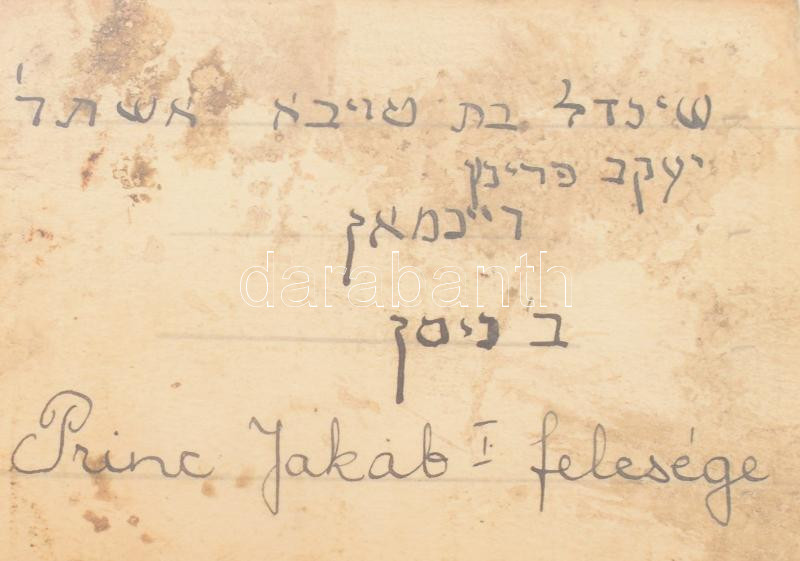 שינדל בת טויבא אשת ר'
יעקב פרינץ
רייכמאן
ב' ניסן
Princ Jakab I. felesége
darabanth